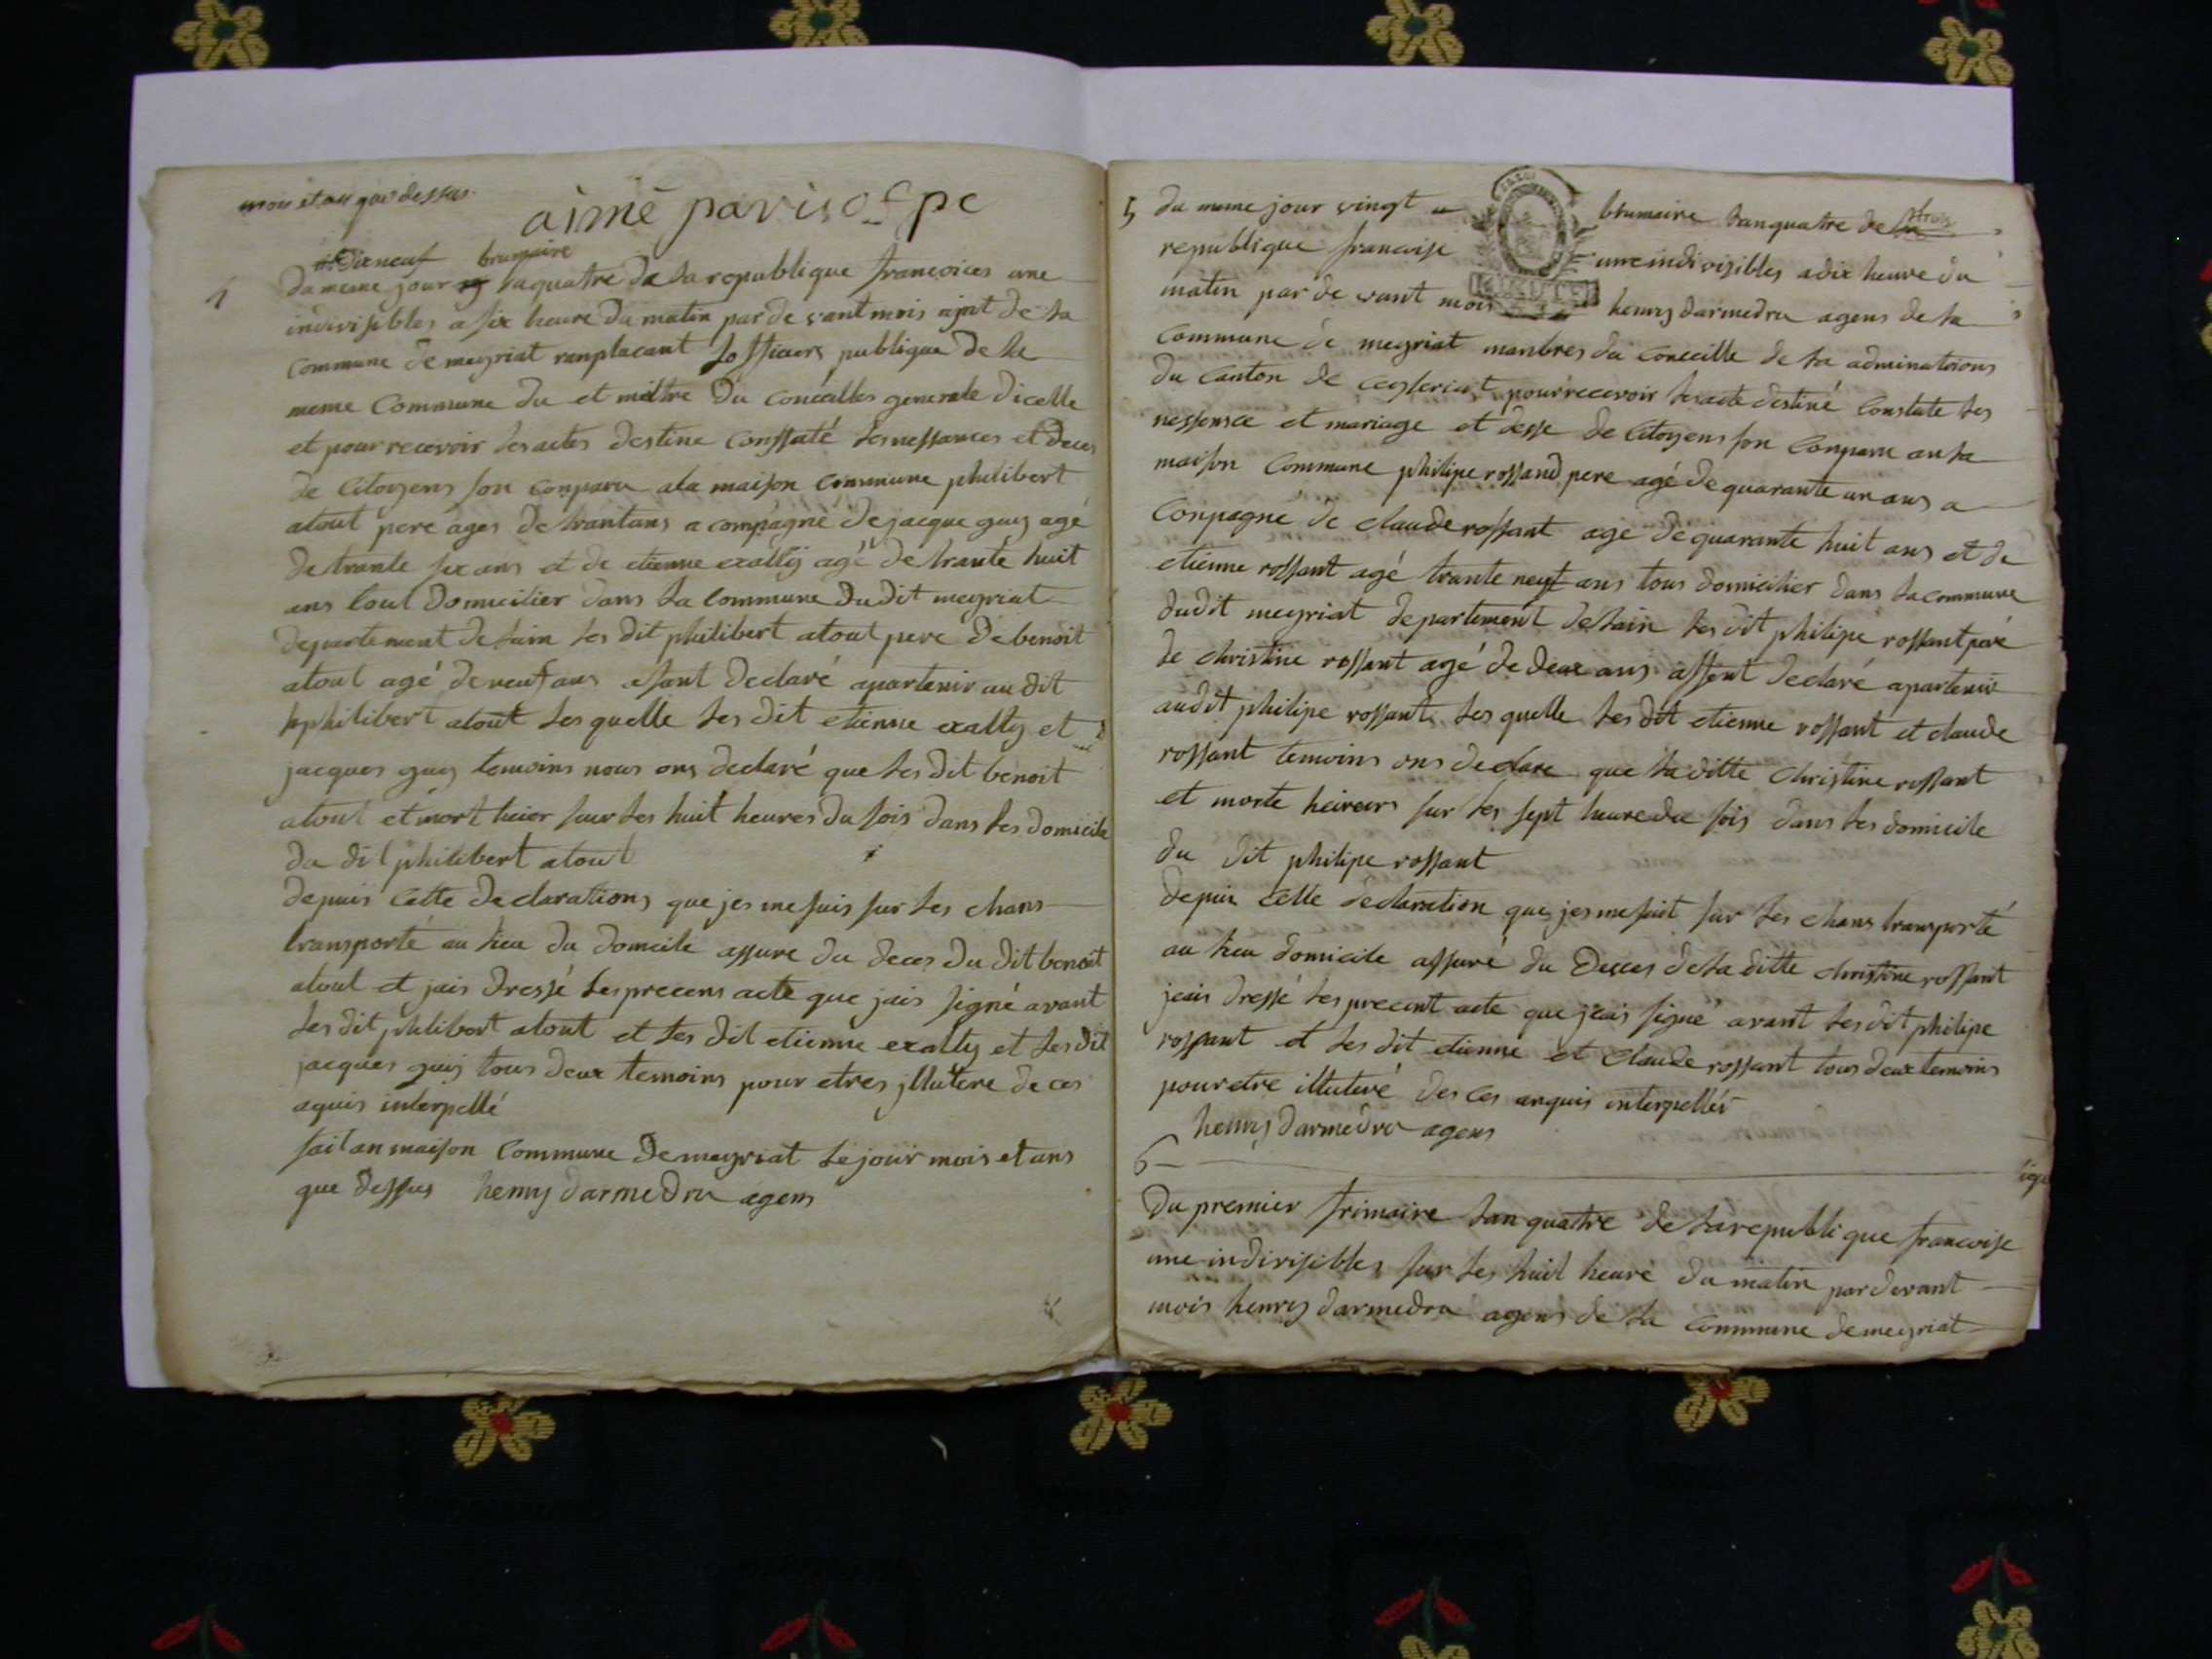 mois et an que dessus
aimé pavis of pc
dixneuf brumaire
4 du meme jour laquatre de la republique francoices une
indivisibles a six heure du matin par de vant mois ajnt de la
commune de meyriat ranplacant lofficiers publique de la
meme commune du et miltre du conceilles generale dicelle
et pour recevoir les actes destine consstaté les nessances et deces
de citoyens son conparu ala maison commune philibert
atout pere ages de trantans a compagné de jacque guy agé
de trante six ans et de etienne exalty agé de trante huit
ans tout domicilier dans la commune du dit meyriat
departement de lain les dit philibert atout pere de benoit
atout agé de neuf ans essant declaré apartenir au dit
philibert atout les quelle les dit etienne exalty et
jacques guy temoins nous ons declaré que les dit benoit
atout et mort heier sur les huit heures du sois dans les domicile
du dit philibert atout
depuis cette declarations que jes me suis sur les chans
transporté au lieu du domcile assure du deces du dit benoit
atout et jais dressé les precens acte que jais signé avant
les dit philibert atout et les dit etienne exalty et les dit
jacques guy tous deux temoins pour etres jllutere de ces
aquis interpellé
fait an maison commune de meyriat le jour mois et ans
que dessus henry darmedru agens
5 du meme jour vingt brumaire lanquatre de la
republique francoise une indivisibles a dix heure du
matin par de vant mois henry darmedru agens de la
commune de meyriat manbres du conceille de la adminatrions
du canton de ceyseriat pour recevoir les acte destiné constate les
nessensce et mariage et desse de citoyens son conparu an la
maison commune philipe rossand pere agé de quarante un ans a
conpagné de claude rossant age de quarante huit ans et de
etienne rossant agé trante neuf ans tous domicilier dans la commune
dudit meyriat departement de lain les dit philipe rossant pere
de christine rossant agé de deux ans assent declaré apartenir
audit philipe rossant les quelle les dit etienne rossant et claude
rossant temoins ons declare que la ditte christine rossant
et morte heirers sur les sept heure du sois dans les domicile
du dit philipe rossant
depuis cette declaration que jes me suit sur les chans transporté
au lieu domicile assuré du deces de la ditte christine rossant
jeais dressé les precent acte que jeais signé avant les dit philipe
rossant et les dit etienne et claude rossant tous deux temoins
pour etre illuteré des ces anquis interpellés
henry darmedru agens
6
Du premier frimaire lan quatre de la republique francoise
une indivisibles sur les huit heure du matin par devant
mois henry darmedru agens de la commune de meyriat